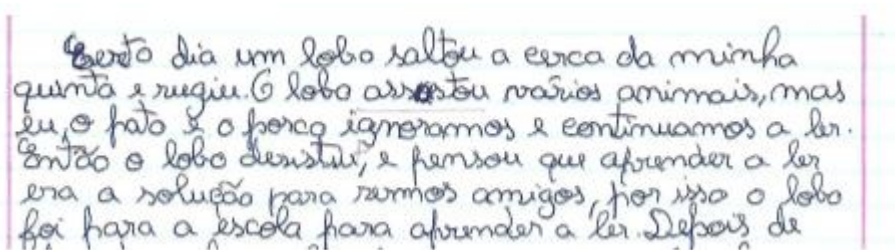 Certo dia um lobo saltou a cerca da minha
quinta e rugiu. O lobo assustou vários animais, mas
eu, o pato e o porco ignoramos e continuamos a ler.
Então o lobo desistiu, e pensou que aprender a ler
era a solução para sermos amigos, por isso o lobo
foi para a escola para aprender a ler. Depois de